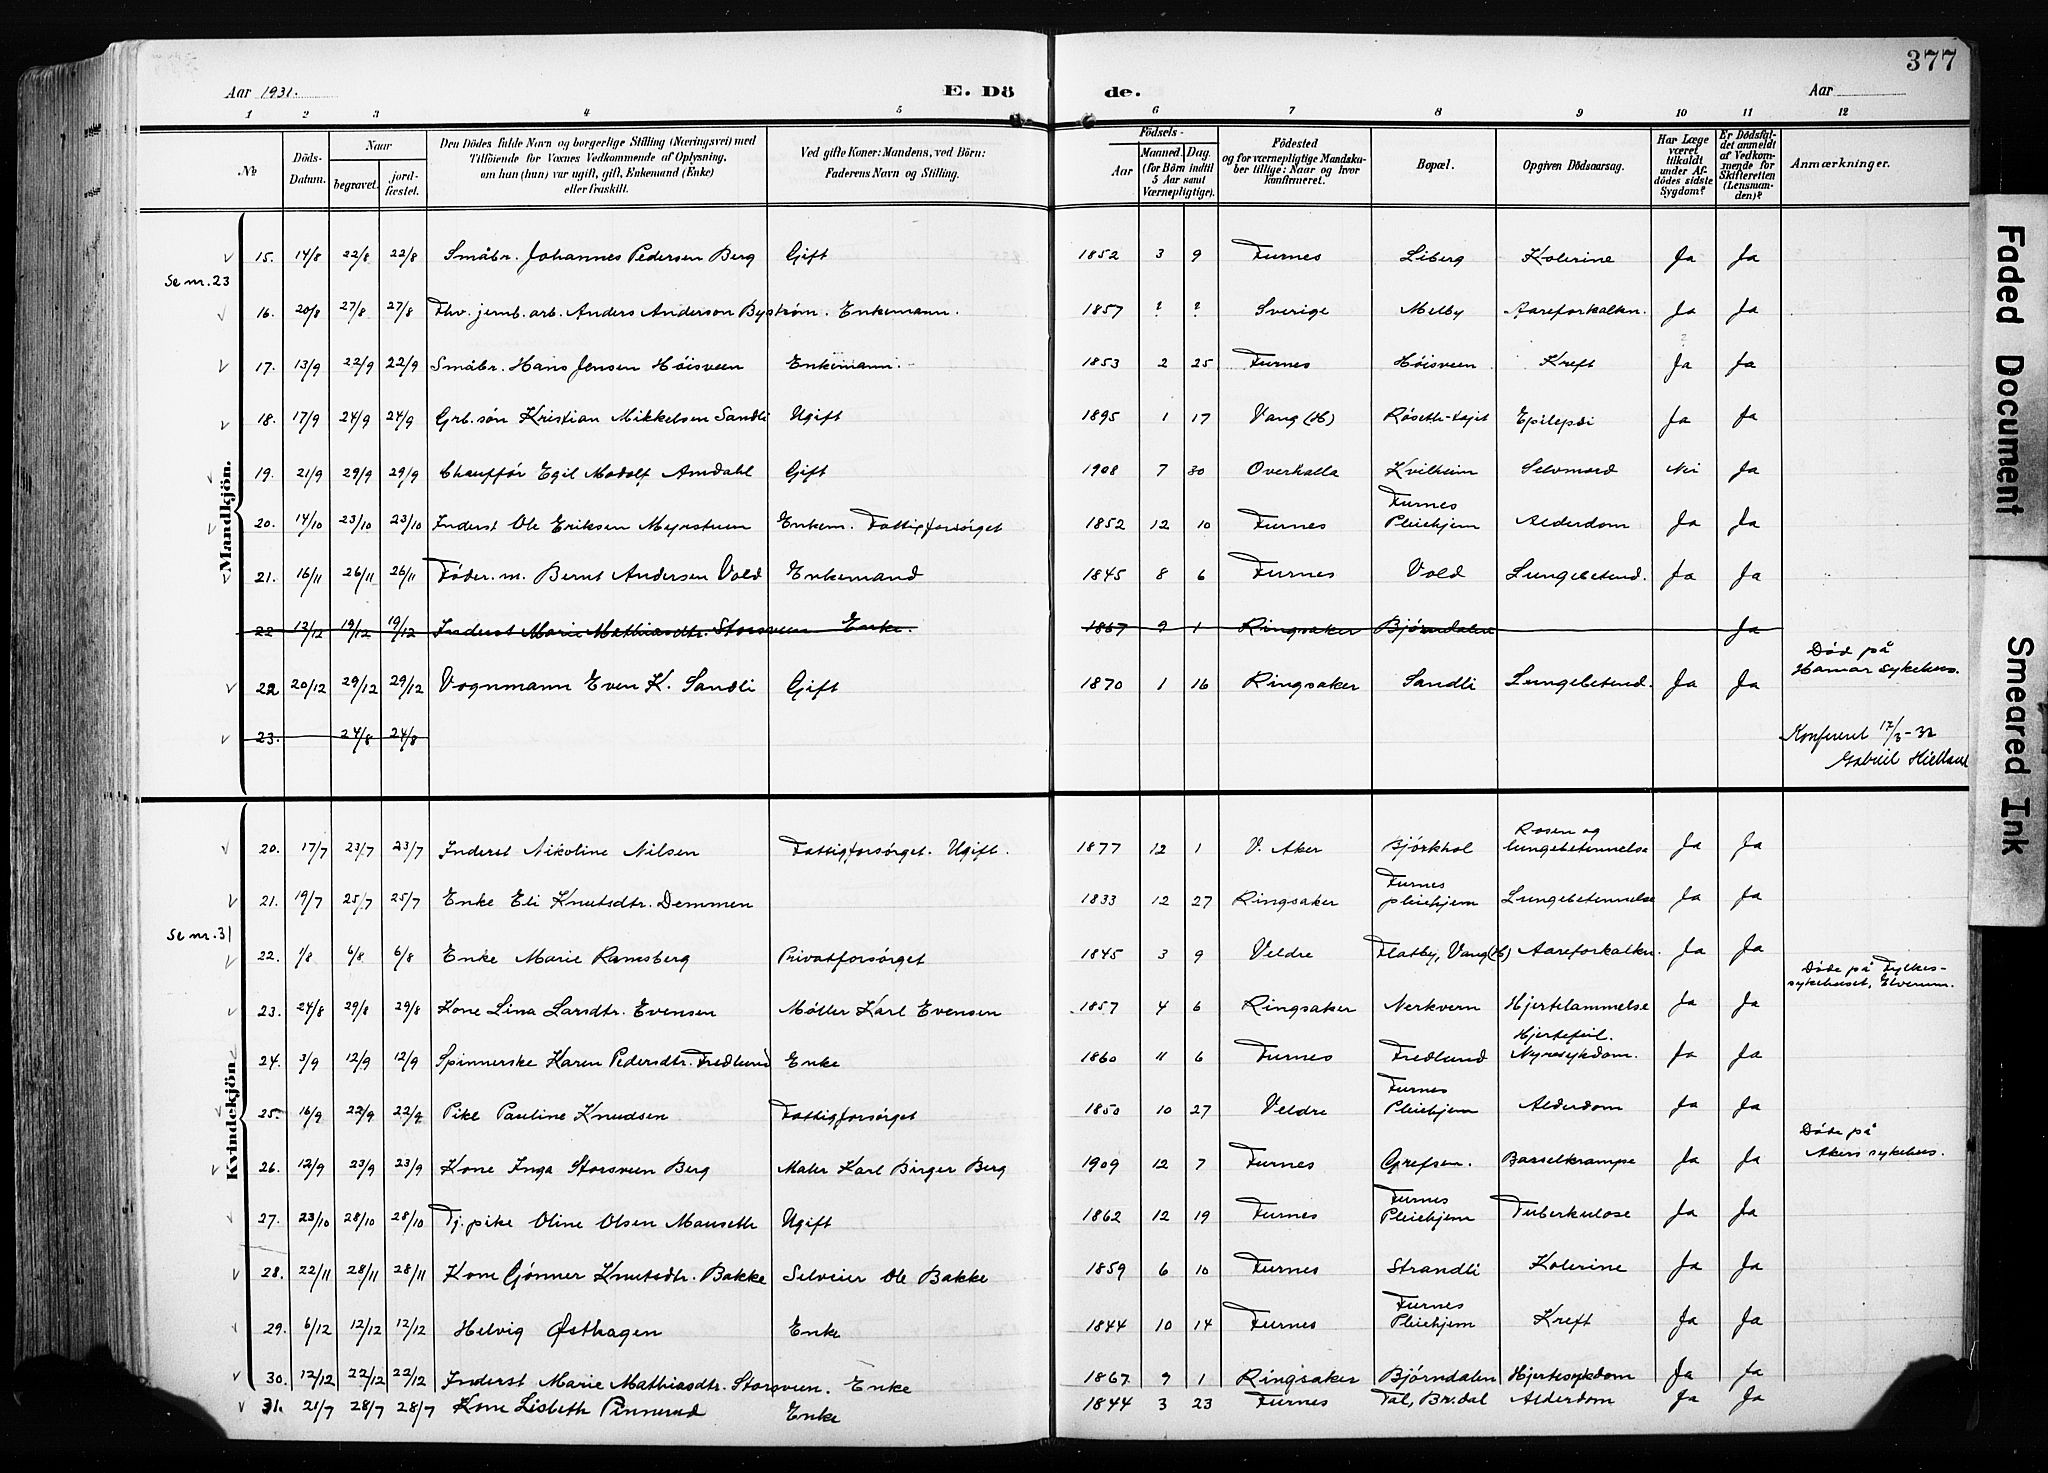 377
Aar 1931. E. Dö de. Aar
1 2 3 4 5 6 7 8 9 10 11 12
No
Döds-Datum.
Naar
begravet.
jord-fæstet.
Den Dödes fulde Navn og borgerlige Stilling (Næringsvei) med
Tilföiende for Voxnes Vedkommende af Oplysning,
om han (hun) var ugift, gift, Enkemand (Enke)
eller fraskilt.
Ved gifte Koner: Mandens, ved Börn:
Faderens Navn og Stilling.
Födsels-
Aar
Maaned. Dag.
(for Börn indtil
5 Aar samt
Værnepligtige).
Födested
og for værnepligtige Mandska-
ber tillige: Naar og hvor
konfirmeret.
Bopæl.
Opgiven Dödsaarsag.
Har Læge
været
tilkaldt
under Af-
dödes sidste
Sygdom?
Er Dödsfal-
det anmeldt
af Vedkom-
mende for
Skifteretten
(Lensman-
den)?
Anmærkninger.
Mandkjön.
15. 14/8 22/8 22/8 Småbr. Johannes Pedersen Berg Gift 1852 3 9 Furnes Liberg Kolerine Ja Ja
Se nr. 23
16. 20/8 27/8 27/8 Fhv. jernb. arb. Anders Anderson Byström. Enkemann. 1857 ? ? Sverige Melby Aareforkalkn. Ja Ja
17. 13/9 22/9 22/9 Småbr. Hans Jensen Høisveen Enkemann. 1853 2 25 Furnes Høisveen Kreft Ja Ja
18. 17/9 24/9 24/9 Grb. søn Kristian Mikkelsen Sandli Ugift 1895 1 17 Vang (H) Epilepsi Ja Ja
19. 21/9 29/9 29/9 Chauffør Egil Modolf Amdahl Gift 1908 7 30 Overhalla Kvilheim Selvmord Nei Ja
20. 14/10 23/10 23/10 Inderst Ole Eriksen Myrstuen Enkem. Fattigforsørget 1852 12 10 Furnes Furnes Pleiehjem Alderdom Ja Ja
21. 16/11 26/11 26/11 Føder. m. Bernt Andersen Vold Enkemand 1845 8 6 Furnes Vold Lungebetend. Ja Ja
22 12/12 19/12 19/12 Inderst Marie Mathiasdtr. Storsveen Enke. 1867 9 1 Ringsaker Bjørndalen Ja
22 20/12 29/12 29/12 Vognmann Even K. Sandli Gift 1870 1 16 Ringsaker Sandli Lungebetend. Ja Ja Død på Hamar sykehus.
23. 24/8 24/8
Konferert 17/3-32
Gabriel Kielland
Kvindekjön.
20. 17/7 23/7 23/7 Inderst Nikoline Nilsen Fattigforsørget. Ugift. 1877 12 1 V. Aker Bjørkhol Rosen og lungebetennelse Ja Ja
21. 19/7 25/7 25/7 Enke Eli Knutsdtr. Demmen 1833 12 27 Ringsaker Furnes pleiehjem Lungebetennelse Ja Ja
Se nr. 31
22. 1/8 6/8 6/8 Enke Marie Ramsberg Privatforsørget 1845 3 9 Veldre Flatby, Vang (H) Aareforkalkn. Ja Ja
23. 24/8 29/8 29/8 Kone Lina Larsdtr. Evensen Møller Karl Evensen 1857 4 6 Ringsaker Nerkvern Hjertelammelse Ja Ja Døde på Fylkes-sykehuset, Elverum.
24. 3/9 12/9 12/9 Spinnerske Karen Pedersdtr. Fredlund Enke 1860 11 6 Furnes Fredlund Hjertefeil. Nyresykdom. Ja Ja
25. 16/9 22/9 22/9 Pike Pauline Knudsen Fattigforsørget 1850 10 27 Veldre Furnes Pleiehjem Alderdom Ja Ja
26. 12/9 23/9 23/9 Kone Inga Storsveen Berg Maler Karl Birger Berg 1909 12 7 Furnes Grefsen. Barselkrampe Ja Ja Døde på Akers sykehus.
27. 23/10 28/10 28/10 Tj. pike Oline Olsen Mauseth Ugift 1862 12 19 Furnes Furnes Pleiehjem Tuberkulose Ja Ja
28. 22/11 28/11 28/11 Kone Gjønner Knutsdtr. Bakke Selveier Ole Bakke 1859 6 10 Furnes Strandli Kolerine Ja Ja
29. 6/12 12/12 12/12 Helvig Østhagen Enke 1844 10 14 Furnes Furnes Pleiehjem Kreft Ja Ja
30. 12/12 22/12 22/12 Inderst Marie Mathiasdtr. Storsveen. Enke 1867 9 1 Ringsaker Bjørndalen Hjertesykdom Ja Ja
31. 21/7 28/7 28/7 Kone Lisbeth Pinnerud Enke 1844 3 23 Furnes Fal, Br.dal Alderdom Ja Ja
Faded Document
Smeared Ink